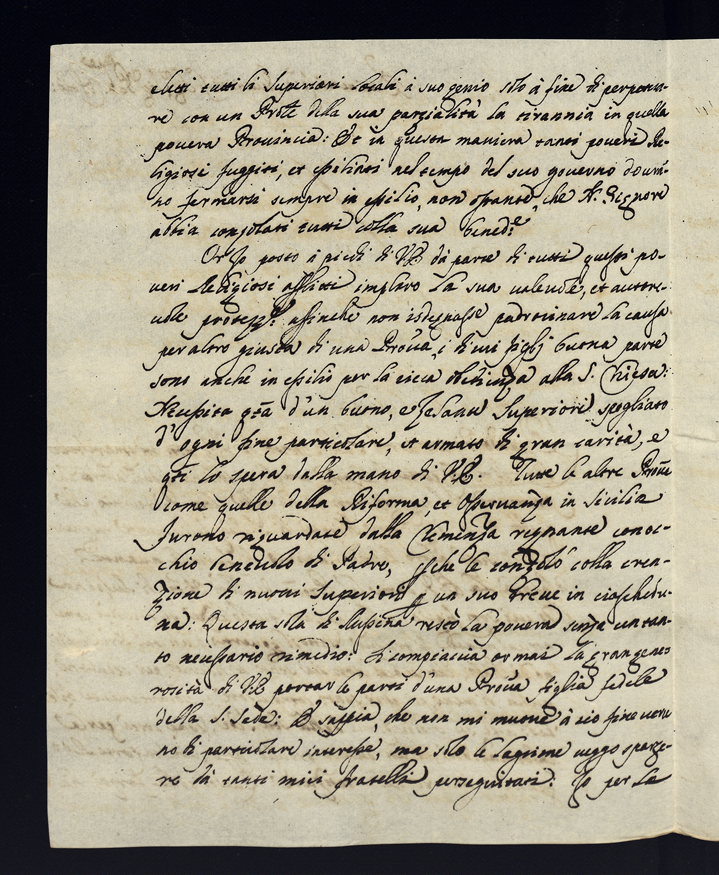 eletti tutti li Superiori locali à suo genio solo à fine di perpetua-
re con un Prôle della sua parzialità la tirannia in quella
povera Provincia: Et in questa maniera tanti poveri Re-
ligiosi fuggiti, et essiliati nel tempo del suo governo dovrā-
no fermarsi sempre in essilio, non ostante, che N. Signore
abbia consolati tutti colla sua bened.e
Or Io posto à piedi di V.E. dà parte di tutti questi po-
veri Religiosi afflitti imploro la sua valevole, et autore-
vole protezz.e affinche non isdegnasse padrocinare la causa
per altro giusta di una Prova, i di cui figlj buona parte
sono anche in essilio per la cieca obedienza alla S. Chiesa:
Necessita q̄ta d'un buono, e zelante Superiore spogliato
d'ogni fine particolare, et armato di gran carità, e
q̄ti lo spera dalla mano di V.E. Tutte le altre Prove
come quelle della Riforma, et Osservanza in Sicilia
furono riguardate dalla Clemenza regnante con oc-
chio benevolo di Padre, che le consolò colla crea-
zione di nuovi Superiori un suo Breve in ciaschedu-
na: Questa sola di Messina restò la povera senza un tan-
to necessario rimedio: Si compiaccia ormai la gran gene
rosità di V.E. portar le parti d'una Prova figlia fedele
della S. Sede: E sappia, che non mi muove à ciò fine veru
no di particolare interesse, ma solo le lagrime veggo sparge-
re dà tanti miei fratelli perseguitati: Io per la